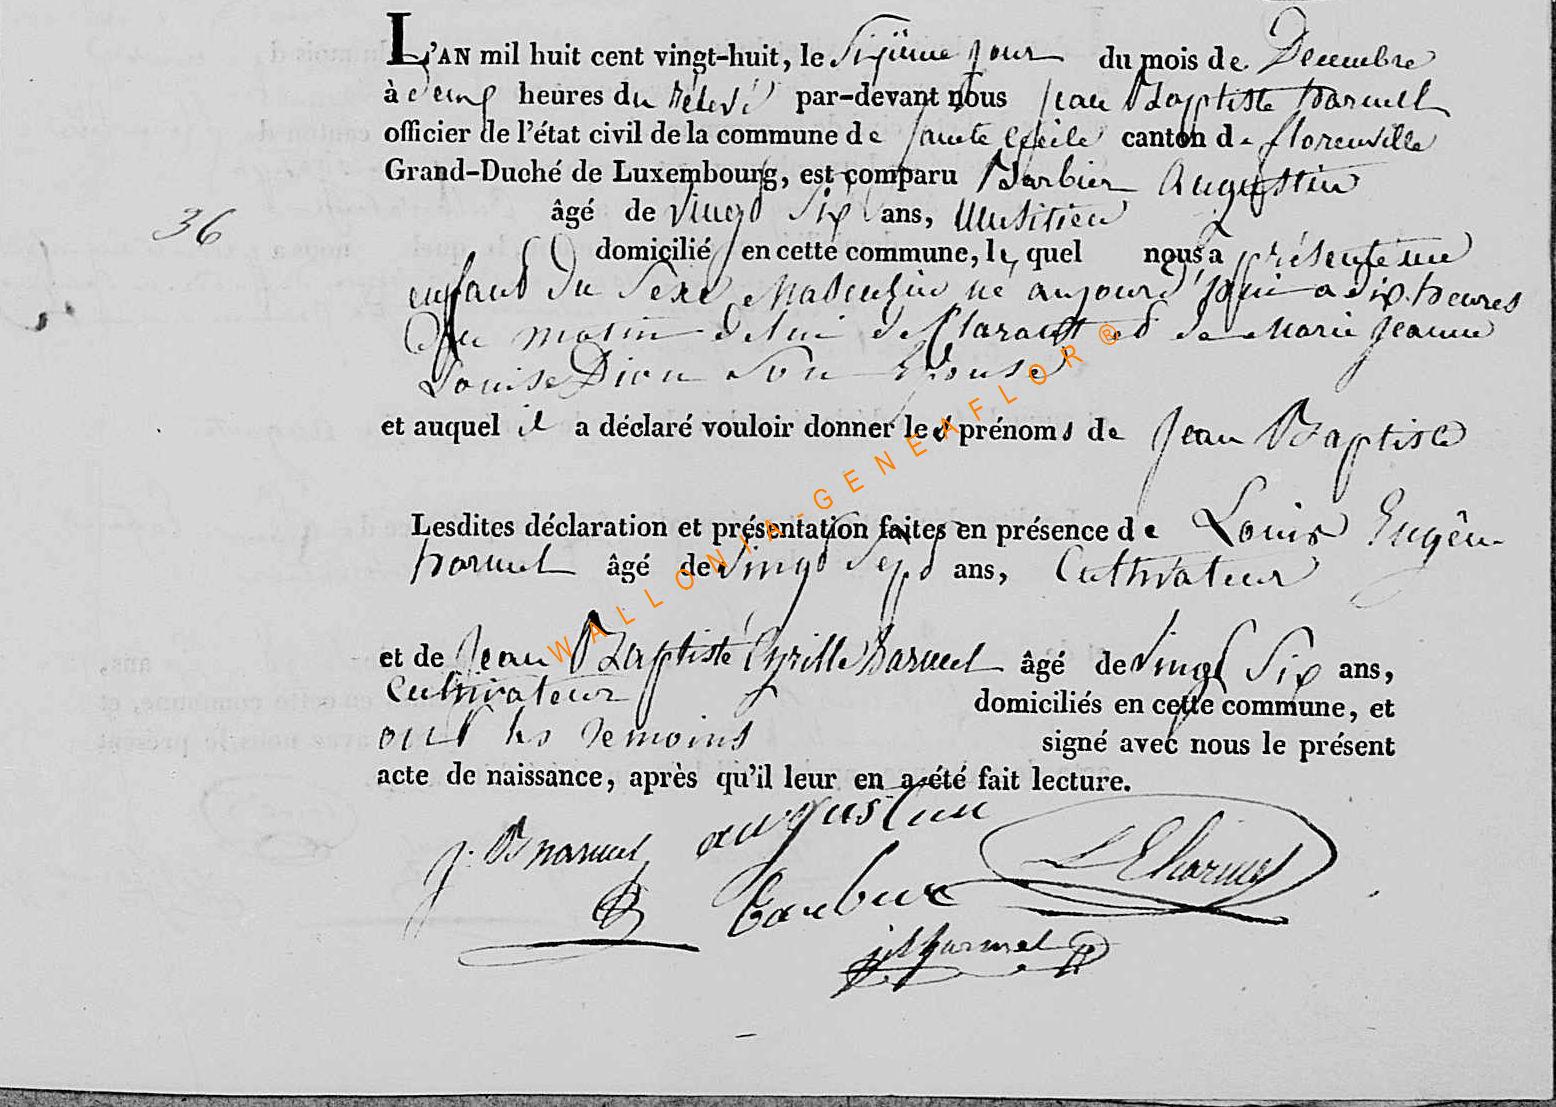 L'AN mil huit cent vingt-huit, le Sixieme jour du mois de Decembre
à cinq heures du rélevé par-devant nous Jean Baptiste harmel
officier de l'état civil de la commune de Sainte Cécile canton de florenville
Grand-Duché de Luxembourg, est comparu Barbier Augustin
36
âgé de vingt Six ans, Musitien
domicilié en cette commune, le quel nous a présenté un
enfant du Sexe Masculin né aujourd'hui a dix heures
du matin de lui déClarant et de Marie Jeanne
Louise Dion Son Epouse
et auquel il a déclaré vouloir donner les prénoms de Jean Baptiste
Lesdites déclaration et présentation faites en présence de Louis Eugêne
harmel âgé de Vingt Sept ans, Cultivateur
et de Jean Baptiste Cyrille harmel âgé de Vingt Six ans,
Cultivateur domiciliés en cette commune, et
ont les temoins signé avec nous le présent
acte de naissance, après qu'il leur en a été fait lecture.
J. B harmel augustin LEharmel
Barbier
jbharmel
WALLONIA-GENEAFLOR®